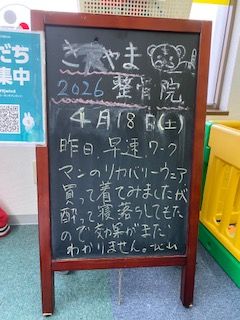 きたやま
2026 整骨院
4月18日(土)
昨日、早速ワーク
マンのリカバリーウェア
買って着てみましたが
酔って寝落ちしてもた
ので効果がまだ
わかりません。
だち
集中